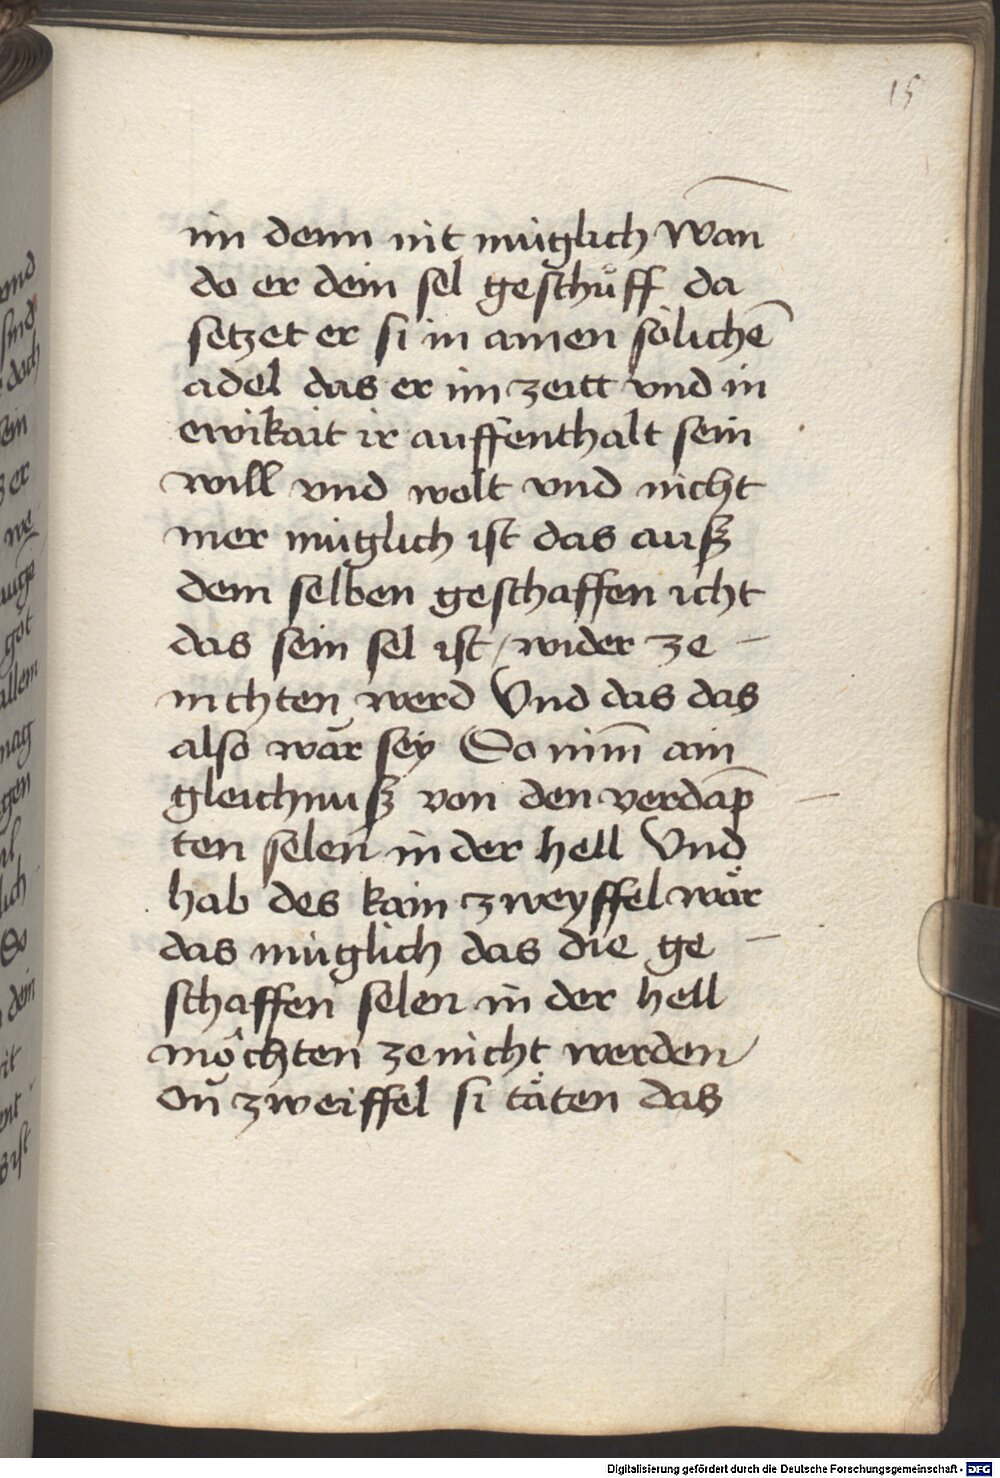 15
im denn nit muglich Wan̄
do er dein sel geschůff da
setzet er si in ainen solichē
adel das er im zeitt vnd in
ewikait ir auffenthalt sein
will vnd wolt vnd nicht
mer muglich ist das auß
dem selben geschaffen icht
das sein sel ist / wider ze –
nichten werd Vnd das das
also wăr sey So nim̄ ain
gleichnuß von den verdap̄
ten selen in der hell Vnd
hab des kain zweyffel wär
das muglich das die ge –
schaffen selen in der hell
möchten ze nicht werden
On̆ zweiffel si täten das
Digitalisierung gefördert durch die Deutsche Forschungsgemeinschaft - DFG